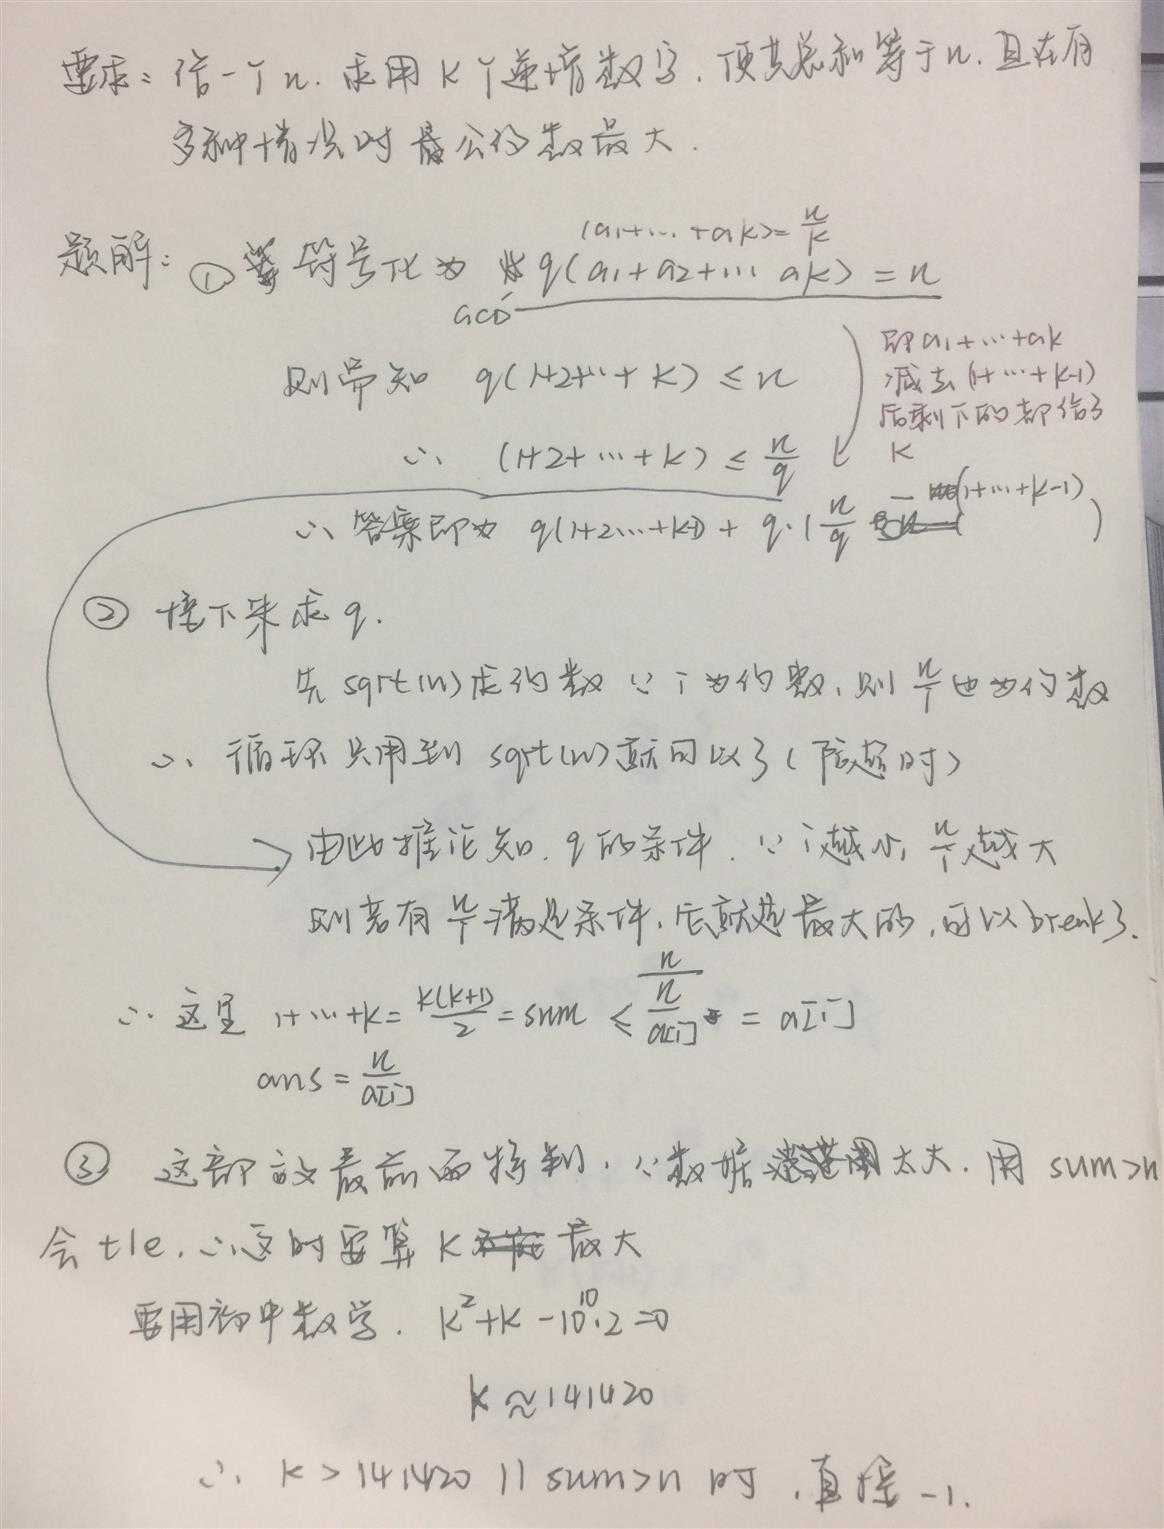 要求：给一个n. 求用K个递增数字，使其总和等于n，且在有
多种情况时最公约数最大.
(a1+…+ak)=n/k
题解：① 符号化为 q(a1+a2+… ak) = n
GCD
则需知 q(1+2+…+k) ≤ n
即a1+…+ak
减去(1+…+k-1)
后剩下的都给了
k
∴ (1+2+…+k) ≤ n/q
∴ 答案即为 q(1+2…+k-1) + q·(n/q - (1+…+k-1))
② 接下来求q.
先sqrt(n)求约数 ∵ i为约数，则n/i也为约数
∴ 循环只用到 sqrt(n)就可以了（防超时）
由此推论知，q的条件，∵ i越小，n/i越大
则若有n/i满足条件，后就是最大的，可以break了.
∴ 这里 1+…+k = k(k+1)/2 = sum ≤ n/(n/a[i]) = a[i]
ans = n/a[i]
③ 这部放最前面特判，∵数据太大，用 sum>n
会tle，∴这时要算 K 最大
要用初中数学. k²+k-10¹⁰·2=0
k≈141420
∴ k>141420 || sum>n 时，直接 -1.